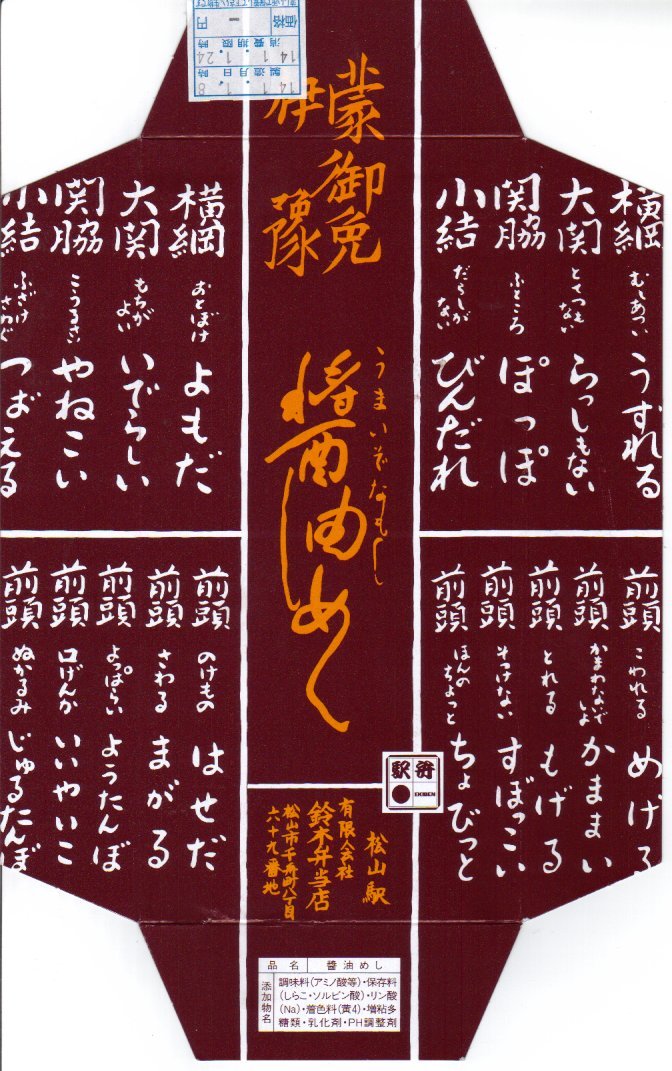 価格 円
消費期限
14 . 1 . 1 . 24 時
製造月日時
14 . 1 . 1 . 8
蒙御免
伊豫
うまいぞなもし
醤油めし
横綱 むしあつい うすれる
大関 とさつもない らっしもない
関脇 ふところ ぽっぽ
小結 だらしがない びんだれ
横綱 おとぼけ よもだ
大関 もちがよい いでらしい
関脇 こうるさい やねこい
小結 ふざけさわぐ つばえる
前頭 こわれる めける
前頭 かまわないでいよ かままい
前頭 とれる もげる
前頭 そっけない すぼっこい
前頭 ほんのちょっと ちょびっと
前頭 のけもの はせだ
前頭 さわる まがる
前頭 よっぱらい ようたんぼ
前頭 口げんか いいやいこ
前頭 ぬかるみ じゅるたんぼ
駅弁
EKIBEN
松山駅
有限会社
鈴木弁当店
松山市千舟町八丁目
六十九番地
品名 醤油めし
添加物名
調味料(アミノ酸等)・保存料
(しらこ・ソルビン酸)・リン酸
(Na)・着色料(黄4)・増粘多
糖類・乳化剤・PH調整剤